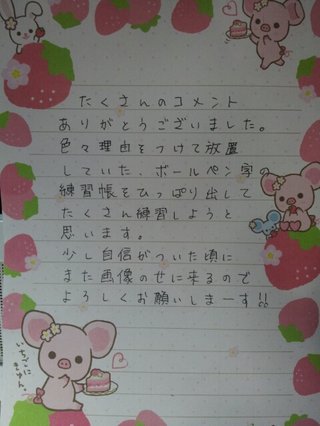 たくさんのコメント
ありがとうございました。
色々理由をつけて放置
していた、ボールペン字の
練習帳をひっぱり出して
たくさん練習しようと
思います。
少し自信がついた頃に
また画像のせに来るので
よろしくお願いしまーす!!
いちごに
きゅん。